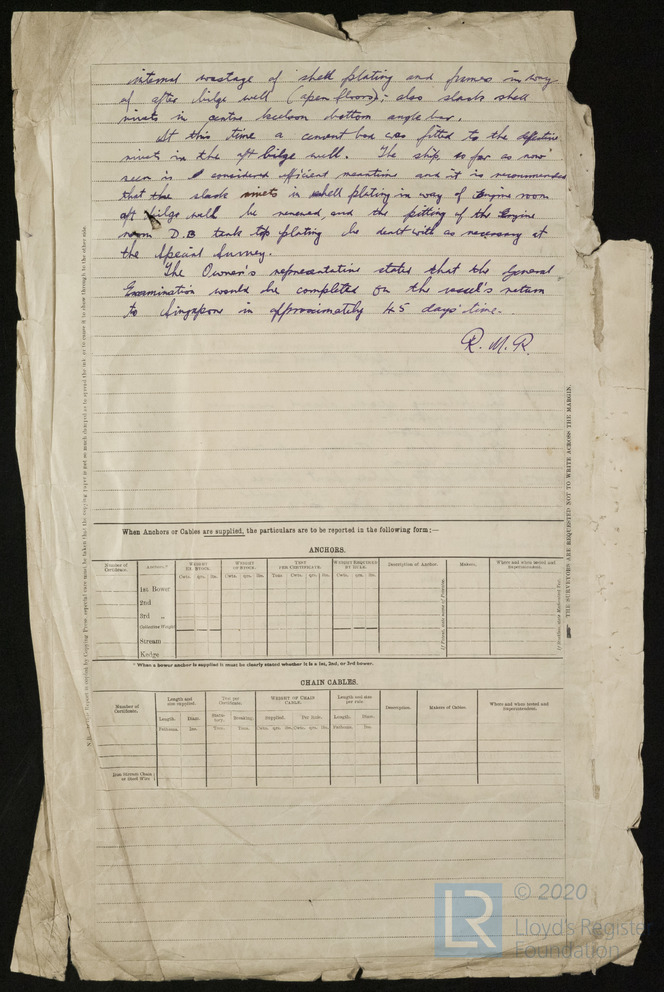 internal wastage of shell plating and frames in way
of after bilge well (open floors); also slack shell
rivets in centre keelson bottom angle bar.
At this time a cement box was fitted to the defective
rivets in the aft bilge well. The ship so far as now
seen is considered efficient meantime and it is recommended
that the slack rivets in shell plating in way of Engine room
aft bilge well be renewed and the pitting of the Engine
room D.B tank top plating be dealt with as necessary at
the Special Survey.
The Owner's representative stated that the General
Examination would be completed on the vessel's return
to Singapore in approximately 45 days time.
R. M. R.
When Anchors or Cables are supplied, the particulars are to be reported in the following form:—
ANCHORS.
Number of Certificate. Anchors.* WEIGHT EX STOCK. WEIGHT OF STOCK. TEST PER CERTIFICATE. WEIGHT REQUIRED BY RULE. Description of Anchor. Makers. Where and when tested and Superintendent.
Cwts. qrs. lbs. Cwts. qrs. lbs. Tons. Cwts. qrs. lbs. Cwts. qrs. lbs.
1st Bower
2nd „
3rd „
Collective Weight
Stream
Kedge
* When a bower anchor is supplied it must be clearly stated whether it is a 1st, 2nd, or 3rd bower.
CHAIN CABLES.
Number of Certificate. Length and size supplied. Test per Certificate. WEIGHT OF CHAIN CABLE. Length and size per rule. Description. Makers of Cables. Where and when tested and Superintendent.
Length. Diam. Statutory. Breaking. Supplied. Per Rule. Length. Diam.
Fathoms. Ins. Tons. Tons. Cwts. qrs. lbs. Cwts. qrs. lbs. Fathoms. Ins.
Iron Stream Chain or Steel Wire
THE SURVEYORS ARE REQUESTED NOT TO WRITE ACROSS THE MARGIN.
LR
© 2020
Lloyd's Register
Foundation